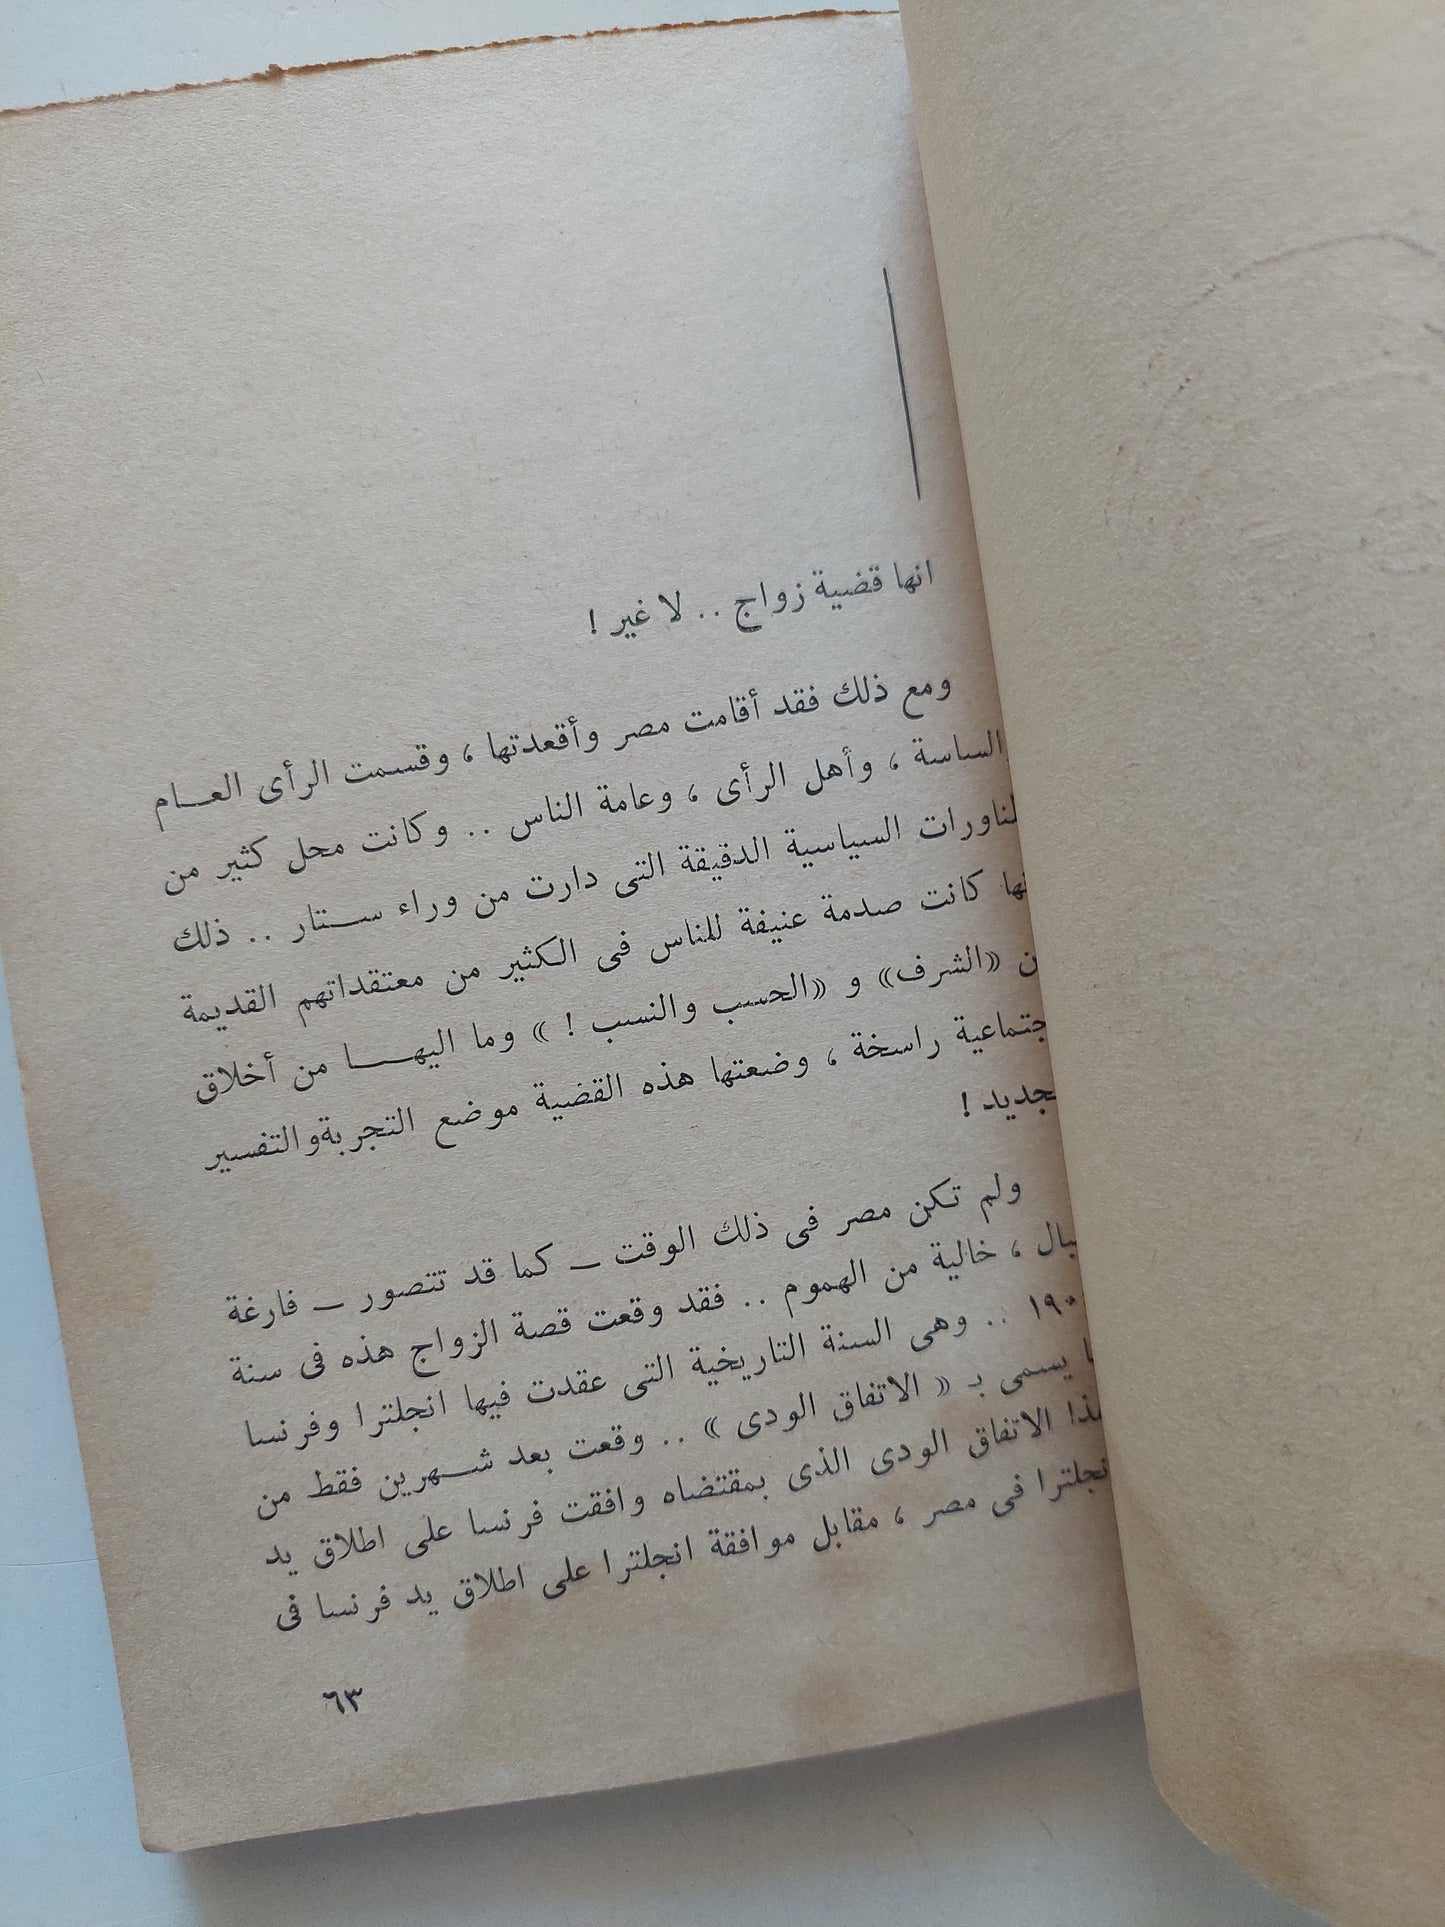 انها قضية زواج .. لا غير !
ومع ذلك فقد أقامت مصر وأقعدتها ، وقسمت الرأى العـــام
السياسة ، وأهل الرأى ، وعامة الناس .. وكانت محل كثير من
السياسية الدقيقة التى دارت من وراء ســـتار .. ذلك
كانت صدمة عنيفة للناس فى الكثير من معتقداتهم القديمة
«الشرف» و «الحسب والنسب ! » وما اليهـــــا من أخلاق
راسخة ، وضعتها هذه القضية موضع التجربة والتفسير
!
ولم تكن مصر فى ذلك الوقت – كما قد تتصور – فارغة
، خالية من الهموم .. فقد وقعت قصة الزواج هذه فى سنة
.. وهى السنة التاريخية التى عقدت فيها انجلترا وفرنسا
يسمى بـ « الاتفاق الودى » .. وقعت بعد شـــهرين فقط من
الاتفاق الودى الذى بمقتضاه وافقت فرنسا على اطلاق يد
فى مصر ، مقابل موافقة انجلترا على اطلاق يد فرنسا فى
٦٣